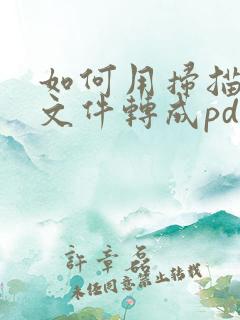 如何用掃描
文件轉成pd
許章磊
未经同意禁止转载